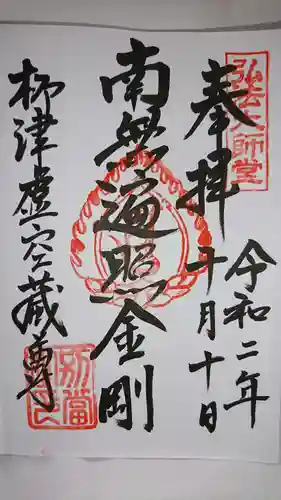 弘法大師堂
奉拝
令和二年
十月十日
南無遍照金剛
柳津虚空蔵尊
別當